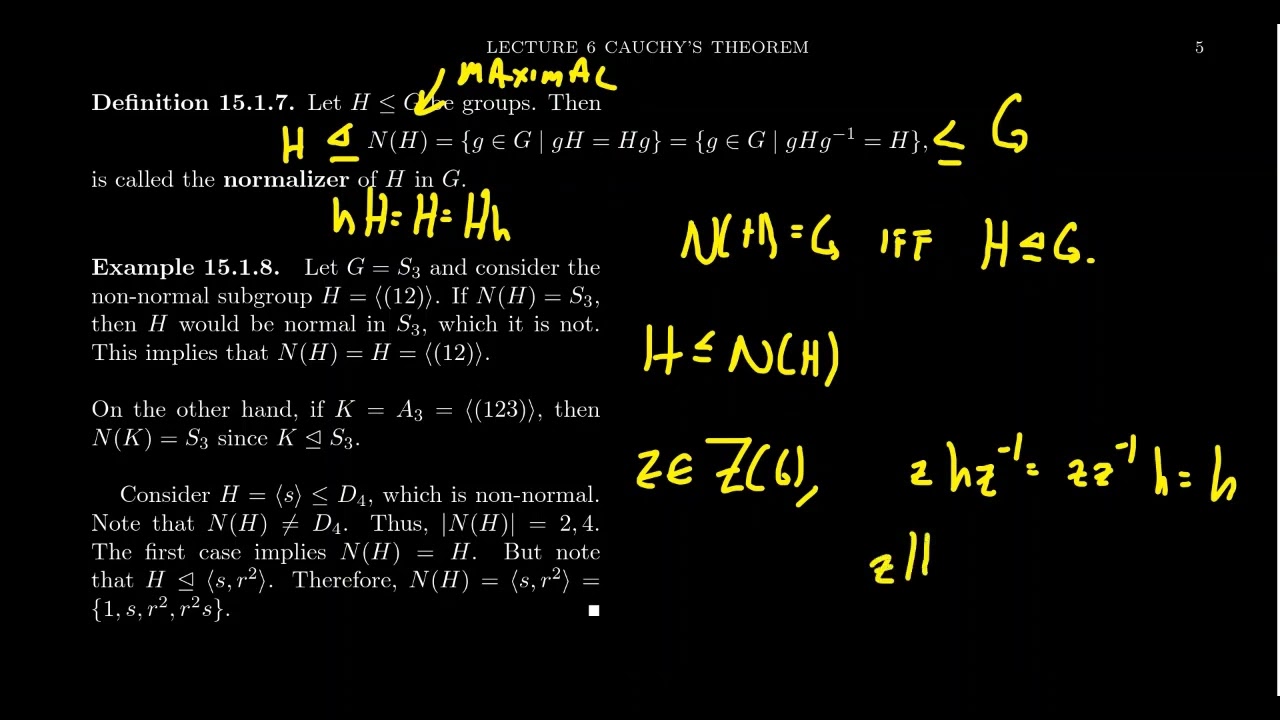 LECTURE 6 CAUCHY'S THEOREM 5
MAXIMAL
Definition 15.1.7. Let H ≤ G be groups. Then
H ⊴ N(H) = {g ∈ G | gH = Hg} = {g ∈ G | gHg⁻¹ = H}, ≤ G
is called the normalizer of H in G.
hH = H = Hh
N(H) = G IFF H ⊴ G.
Example 15.1.8. Let G = S₃ and consider the
non-normal subgroup H = ⟨(12)⟩. If N(H) = S₃,
then H would be normal in S₃, which it is not.
This implies that N(H) = H = ⟨(12)⟩.
H ≤ N(H)
On the other hand, if K = A₃ = ⟨(123)⟩, then
N(K) = S₃ since K ⊴ S₃.
z ∈ Z(G), z h z⁻¹ = z z⁻¹ h = h
Consider H = ⟨s⟩ ≤ D₄, which is non-normal.
Note that N(H) ≠ D₄. Thus, |N(H)| = 2, 4.
The first case implies N(H) = H. But note
that H ⊴ ⟨s, r²⟩. Therefore, N(H) = ⟨s, r²⟩ =
{1, s, r², r²s}. ■
z